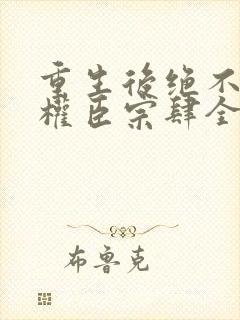 重生後绝不
權臣宗肆全
布鲁克